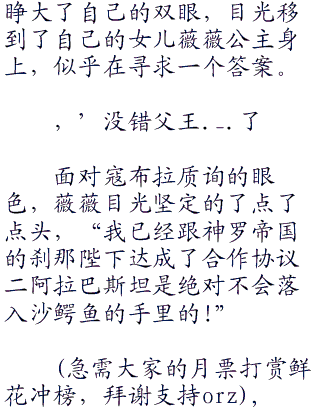 睁大了自己的双眼，目光移
到了自己的女儿薇薇公主身
上，似乎在寻求一个答案。
，’没错父王._.了
面对寇布拉质询的眼
色，薇薇目光坚定的了点了
点头，“我已经跟神罗帝国
的刹那陛下达成了合作协议
二阿拉巴斯坦是绝对不会落
入沙鳄鱼的手里的!”
(急需大家的月票打赏鲜
花冲榜，拜谢支持orz)，